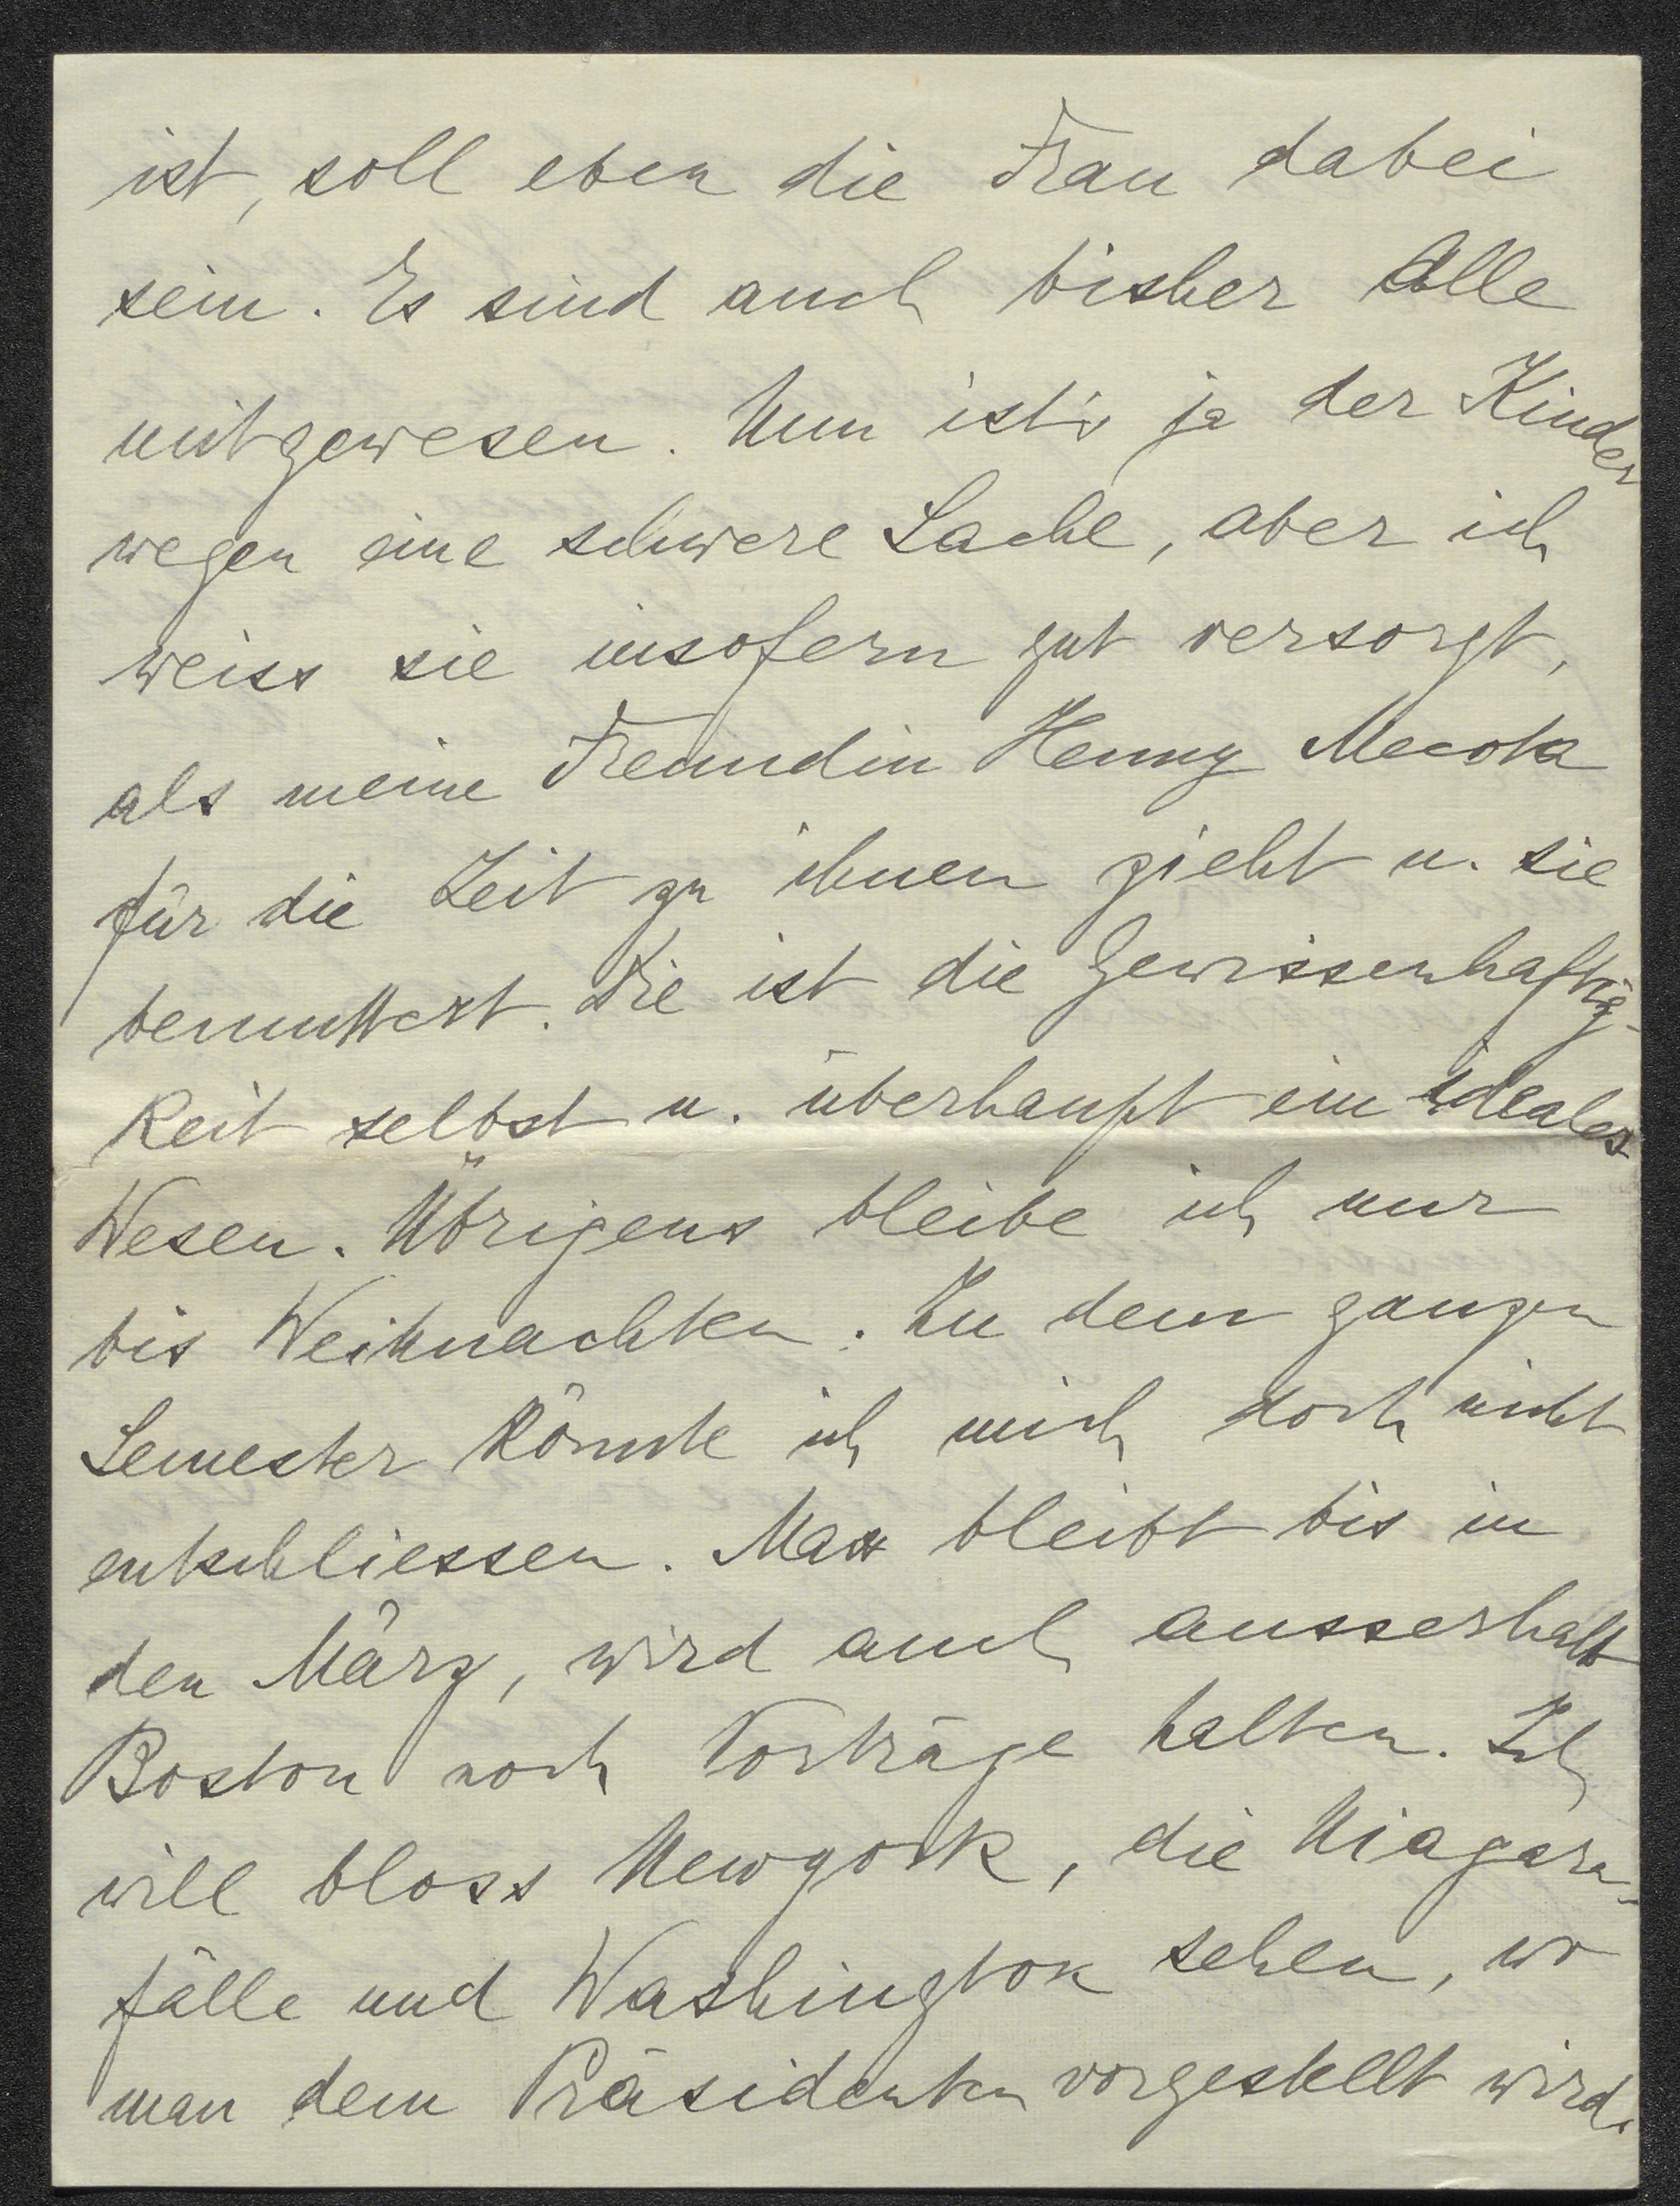 ist, soll eben die Frau dabei
sein. Es sind auch bisher Alle
mitgewesen. Nun ist's ja der Kinder
wegen eine schwere Sache, aber ich
weiss sie insofern gut versorgt,
als meine Freundin Henny
für die Zeit zu ihnen zieht u. sie
bemuttert. Sie ist die Gewissenhaftig-
keit selbst u. überhaupt ein ideales
Wesen. Übrigens bleibe ich nur
bis Weihnachten. Zu dem ganzen
Semester könnte ich mich doch nicht
entschliessen. Max bleibt bis in
den März, wird auch ausserhalb
Boston noch Vorträge halten. Ich
will bloss Newyork, die Niagara-
fälle und Washington sehen, wo
man dem Präsidenten vorgestellt wird.